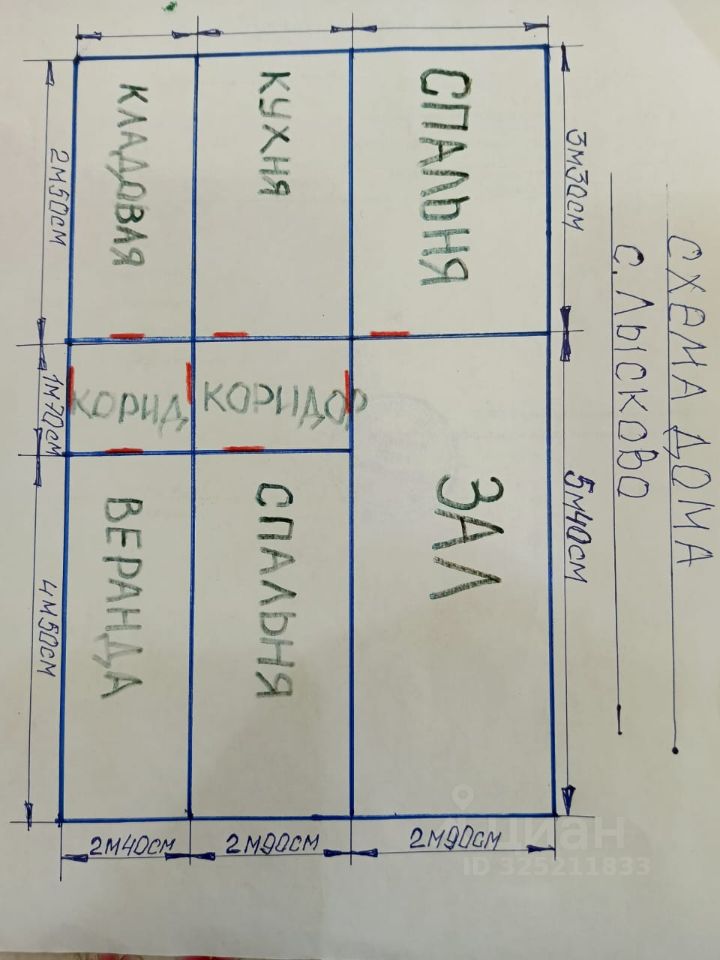 СХЕМА ДОМА
С. ЛЫСКОВО
3м30см
5м40см
СПАЛЬНЯ
ЗАЛ
2м90см
КУХНЯ
КОРИДОР
СПАЛЬНЯ
2м90см
КЛАДОВАЯ
КОРИД
ВЕРАНДА
2м40см
2м50см
1м70см
4м50см
циан
ID 325211833